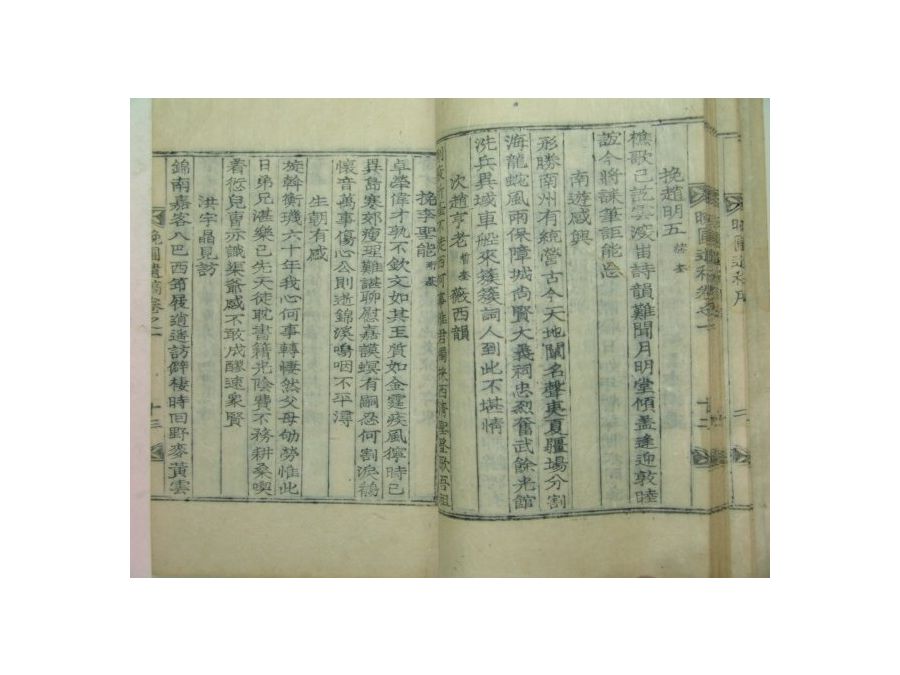 挽趙明五
樵歌已訖雲渡宙詩韻難聞月明堂傾盖逢迎敦睦
誼今將誄筆詎能忘
南遊感興
形勝南州有統營古今天地闡名聲夷夏疆場分割
海龍蛇風雨保障城尚賢大義祠忠烈奮武餘光館
洗兵異域車船來簇簇詞人到此不堪情
次趙亨老 薇西韻
挽李聖能
卓犖偉才孰不欽文如其玉質如金霆疾風獰時已
異島寒郊瘦理難諶聊慰嘉謨螟有嗣忍何割淚鶴
懷音萬事傷心公則逝錦溪嗚咽不平潯
生朝有感
旋斡衡璣六十年我心何事轉悽然父母劬勞惟此
日弟兄湛樂已先天徒耽書籍光陰費不務耕桑喫
着愆兒曹亦識渠爺感不敢成醪速衆賢
洪宇晶見訪
錦南嘉客入巴西筇屐逍遙訪僻棲時回野麥黃雲
晩圃遺稿卷之一 十三